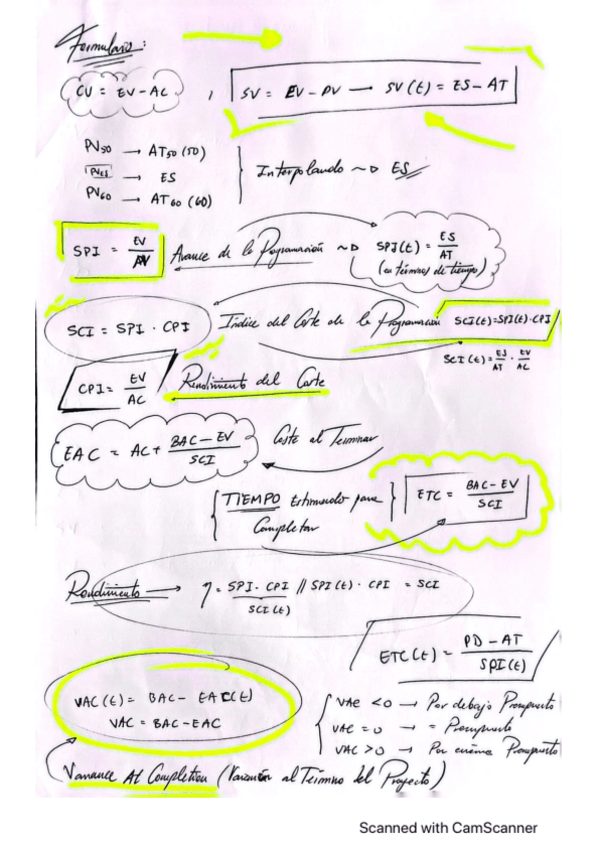 Formulario:
CV = EV - AC , SV = EV - PV → SV(t) = ES - AT
PV50 → AT50 (50)
PVES → ES
PV60 → AT60 (60)
Interpolando ~> ES
SPI = EV/PV Avance de la Programación ~> SPI(t) = ES/AT
(en términos de tiempo)
SCI = SPI · CPI Índice del Coste de la Programación SCI(t)=SPI(t)·CPI
SCI(t) = ES/AT · EV/AC
CPI = EV/AC Rendimiento del Coste
EAC = AC + BAC - EV/SCI Coste al Terminar
TIEMPO Estimado para Completar ETC = BAC - EV/SCI
Rendimiento → η = SPI · CPI // SPI(t) · CPI = SCI
SCI(t)
ETC(t) = PD - AT/SPI(t)
VAC(t) = BAC - EAC(t)
VAC = BAC - EAC
VAC <0 → Por debajo Presupuesto
VAC =0 → = Presupuesto
VAC >0 → Por encima Presupuesto
Variance At Completion (Variación al Término del Proyecto)
Scanned with CamScanner